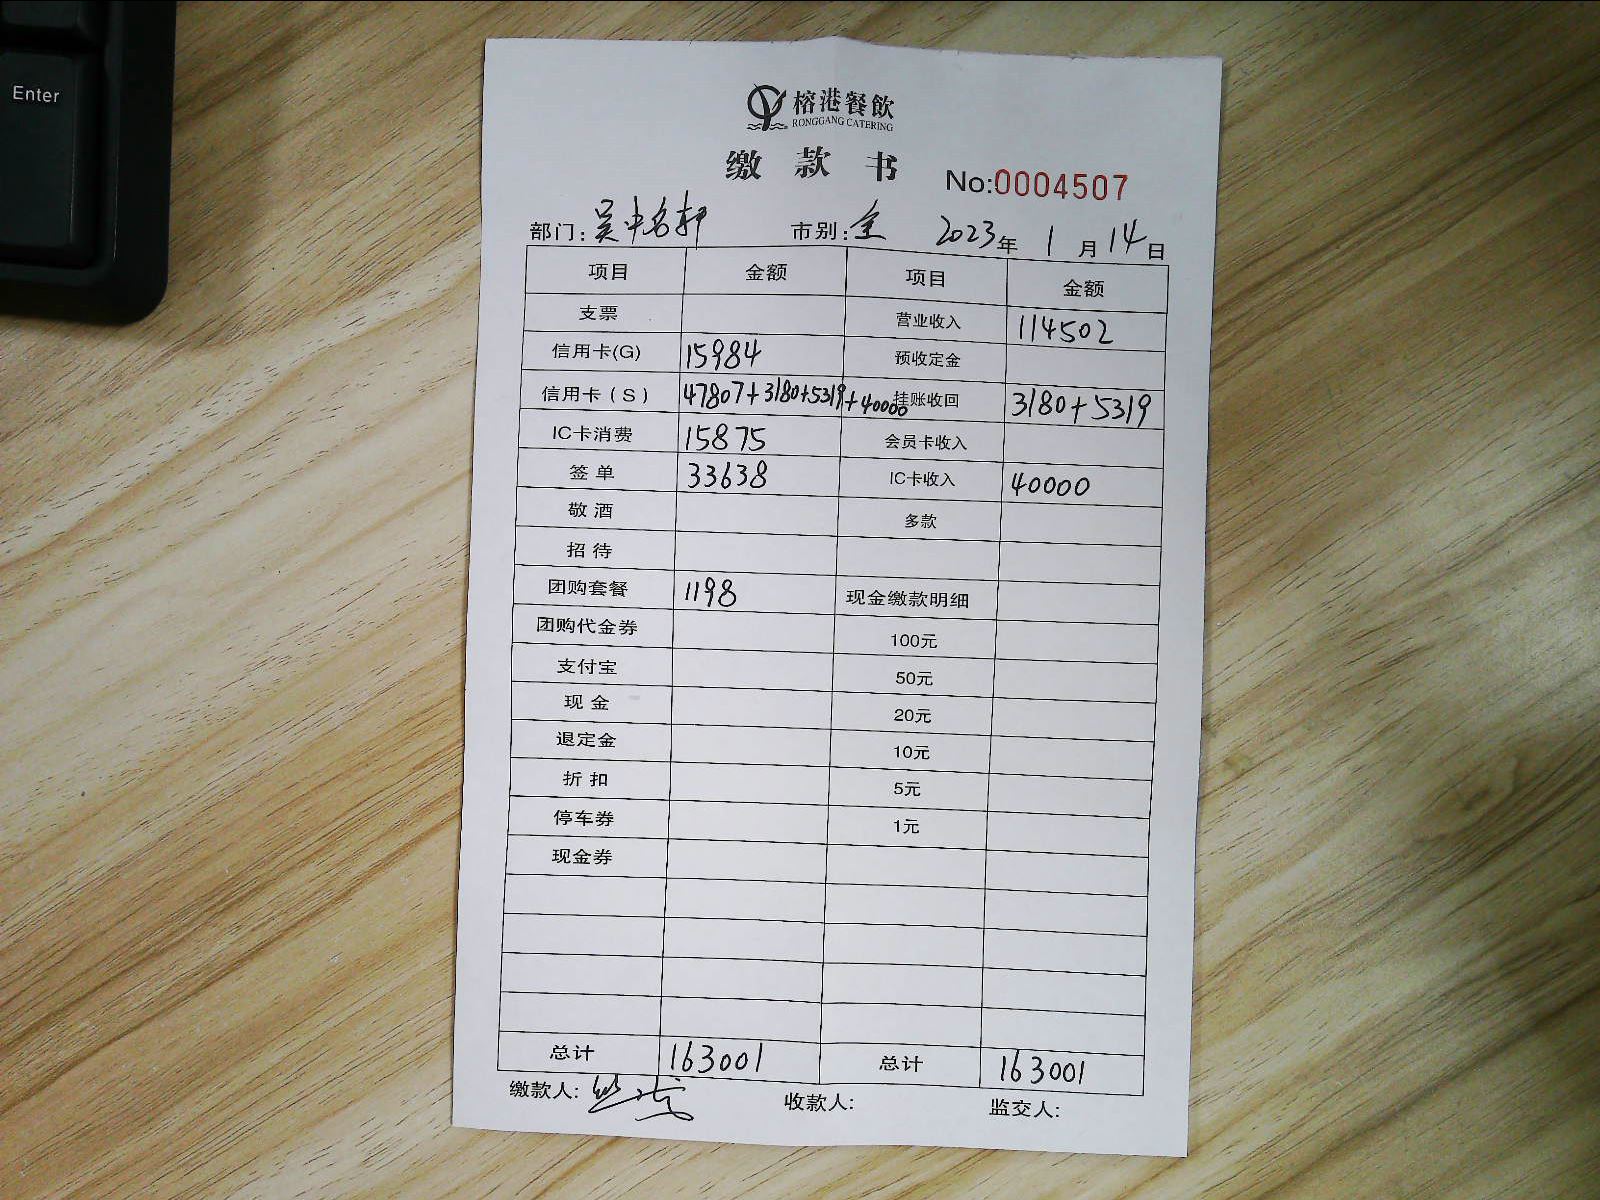 Enter
榕港餐飲
RONGGANG CATERING
缴款书
No:0004507
部门: 吴中名轩 市别: 全 2023年 1月14日
项目 金额 项目 金额
支票 营业收入 114502
信用卡(G) 15984 预收定金
信用卡(S) 47807+3180+5319+40000 挂账收回 3180+5319
IC卡消费 15875 会员卡收入
签单 33638 IC卡收入 40000
敬酒 多款
招待
团购套餐 1198 现金缴款明细
团购代金券 100元
支付宝 50元
现金 20元
退定金 10元
折扣 5元
停车券 1元
现金券
总计 163001 总计 163001
缴款人: 收款人: 监交人: